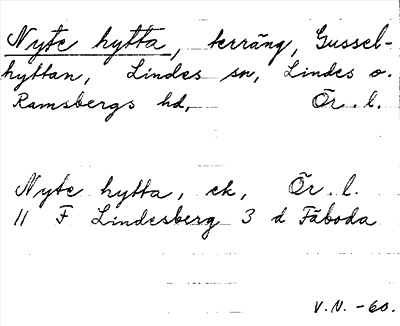 Nyte hytta, terräng, Gussel-
hyttan, Lindes sn, Lindes o.
Ramsbergs hd, Ör. l.
Nyte hytta, ek, Ör. l.
11 F Lindesberg 3 d Fäboda
V.N. -60.